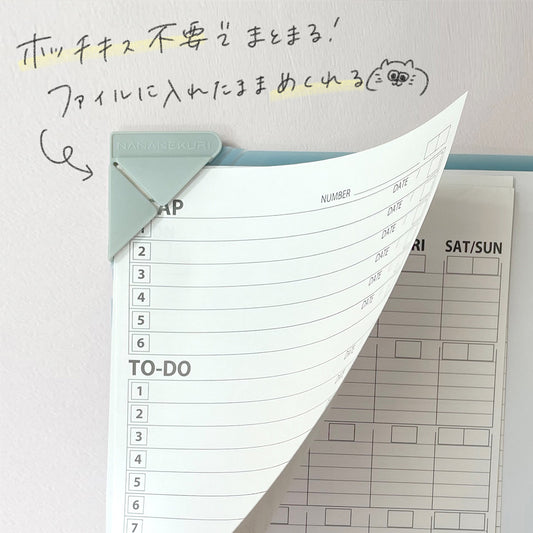 ホッチキス不要でまとまる!
ファイルに入れたままめくれる
NANAMEKURI
AP
NUMBER
DATE
1
DATE
2
DATE
RI
SAT/SUN
3
DATE
4
DATE
5
DATE
6
TO-DO
DATE
1
DATE
2
3
4
5
6
7